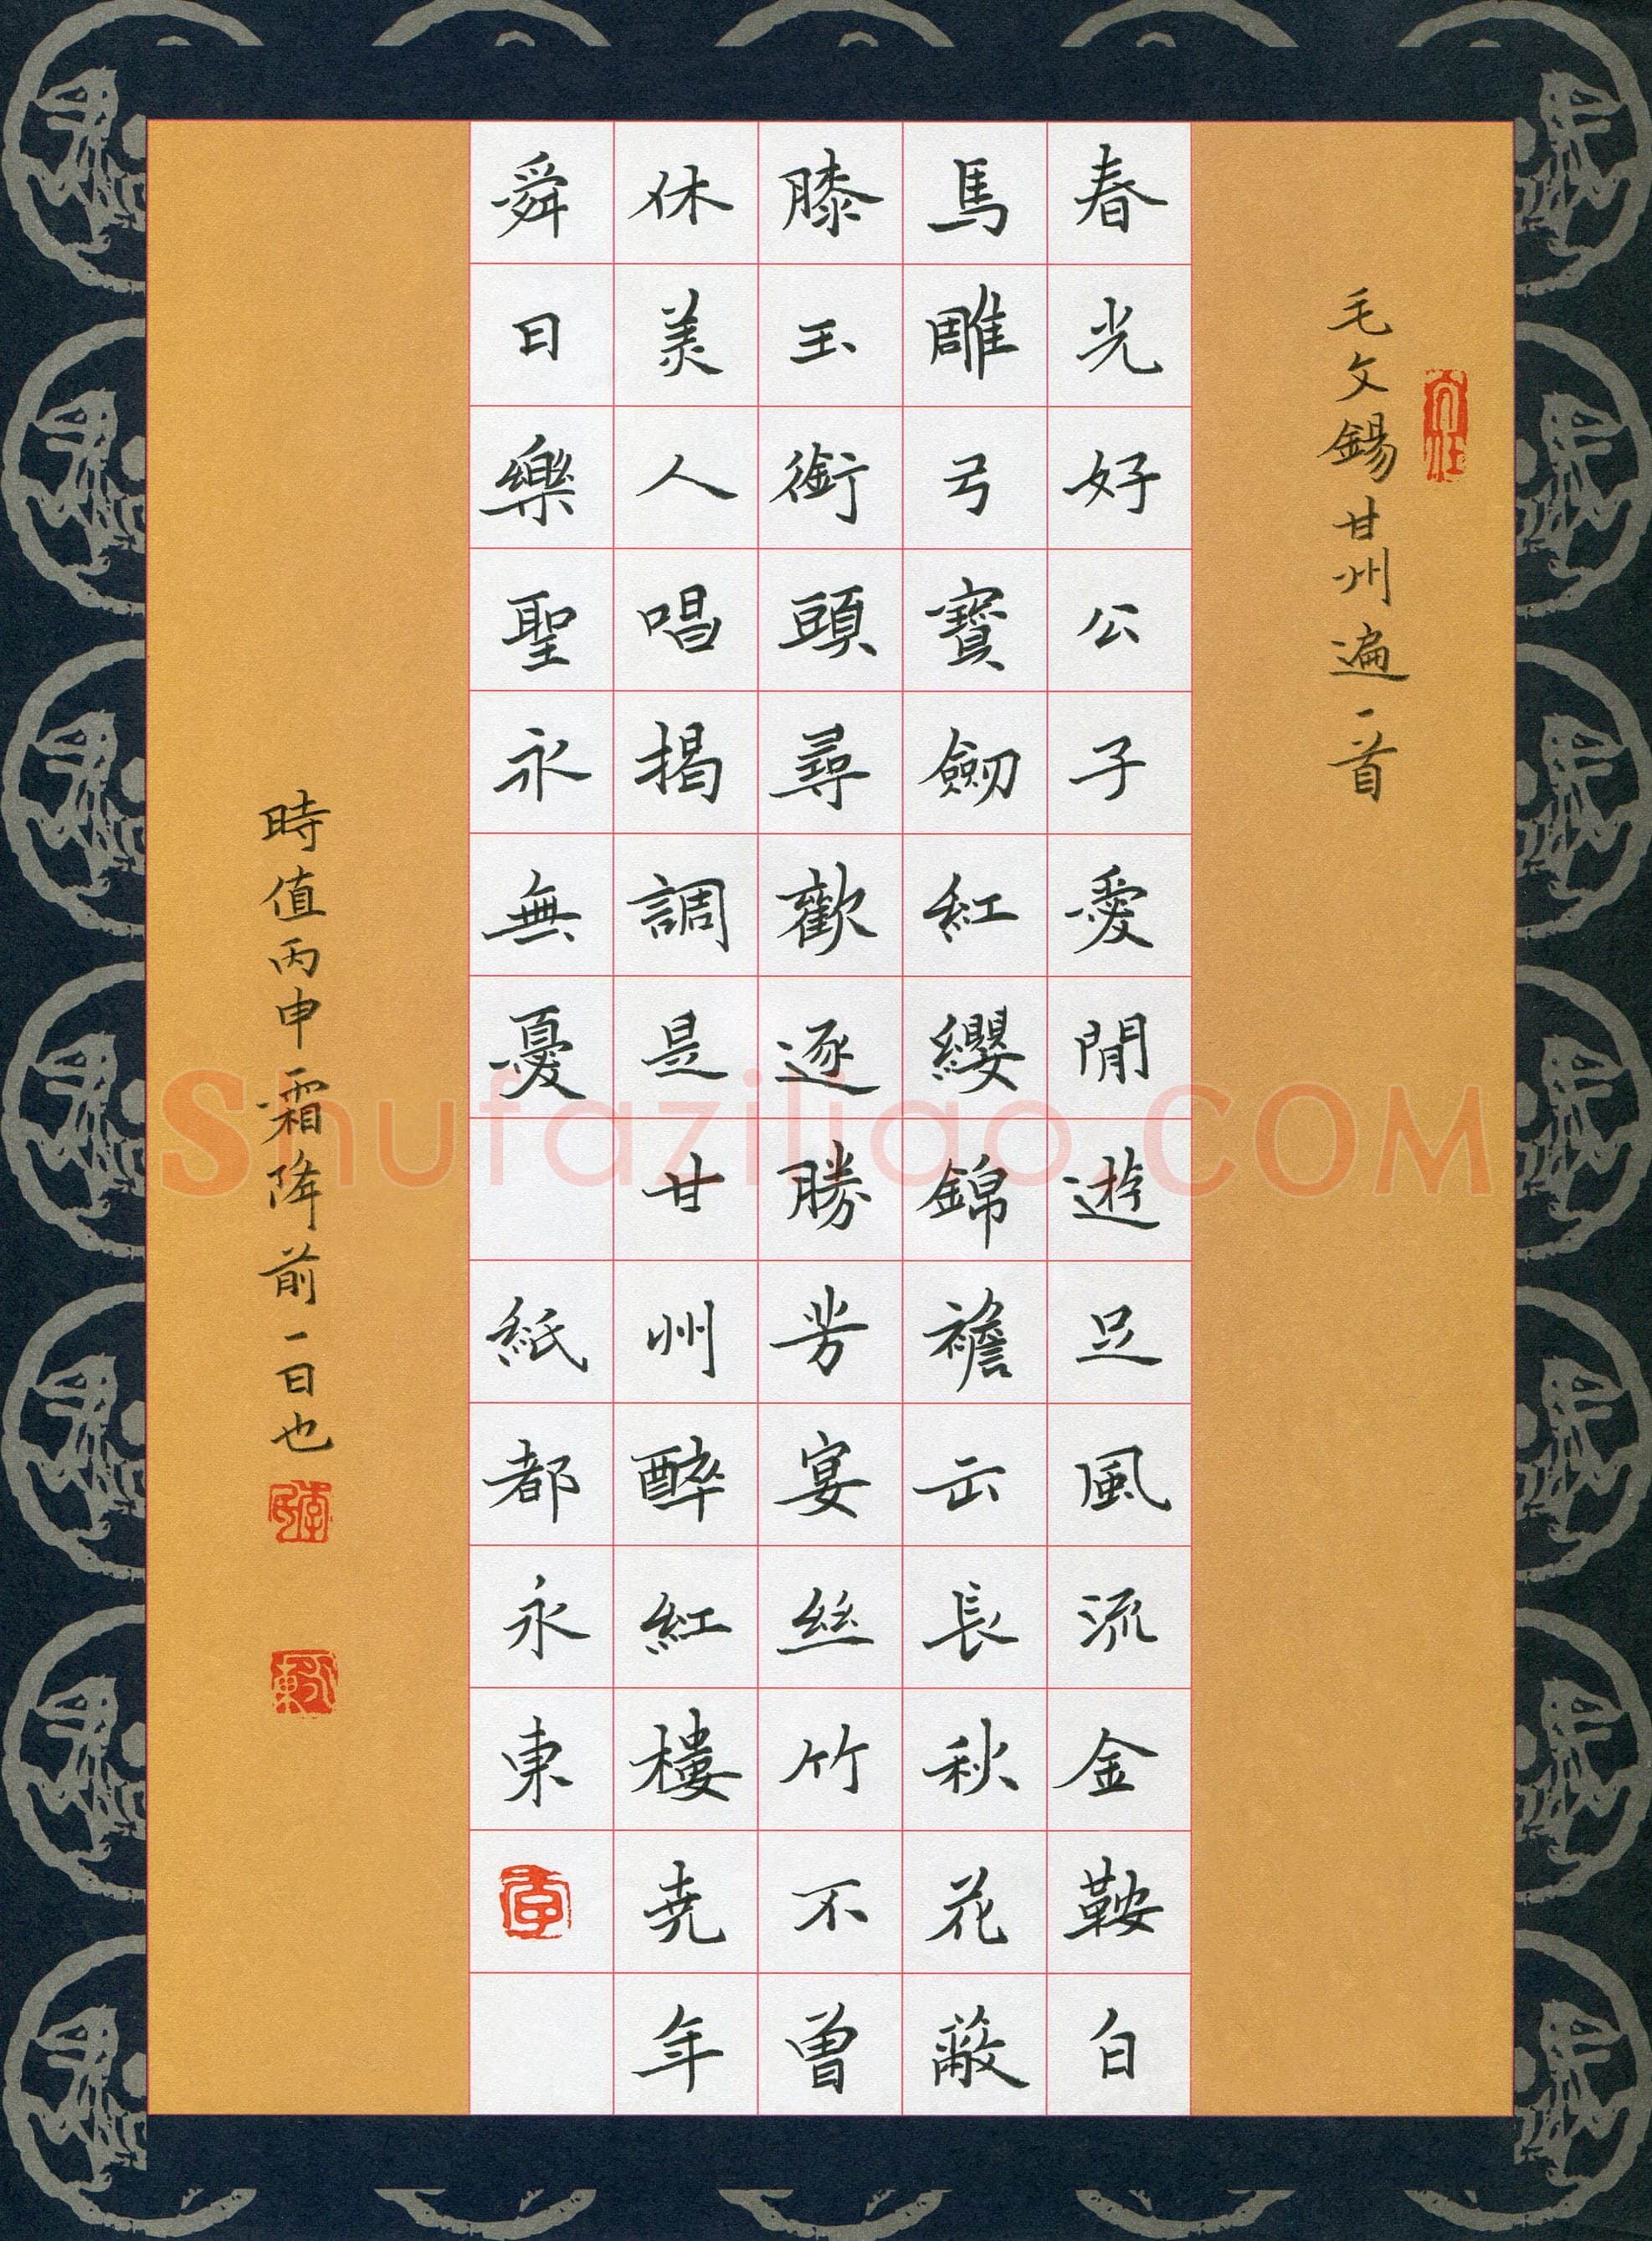 毛文錫甘州遍一首
春光好公子愛閒遊足風流金鞍白
馬雕弓寶劒紅纓錦襜出長秋花蔽
膝玉銜頭尋歡逐勝芳宴絲竹不曾
休美人唱揭調是甘州醉紅樓堯年
舜日樂聖永無憂 紙都永東
時值丙申霜降前一日也
Shufaziliao.COM